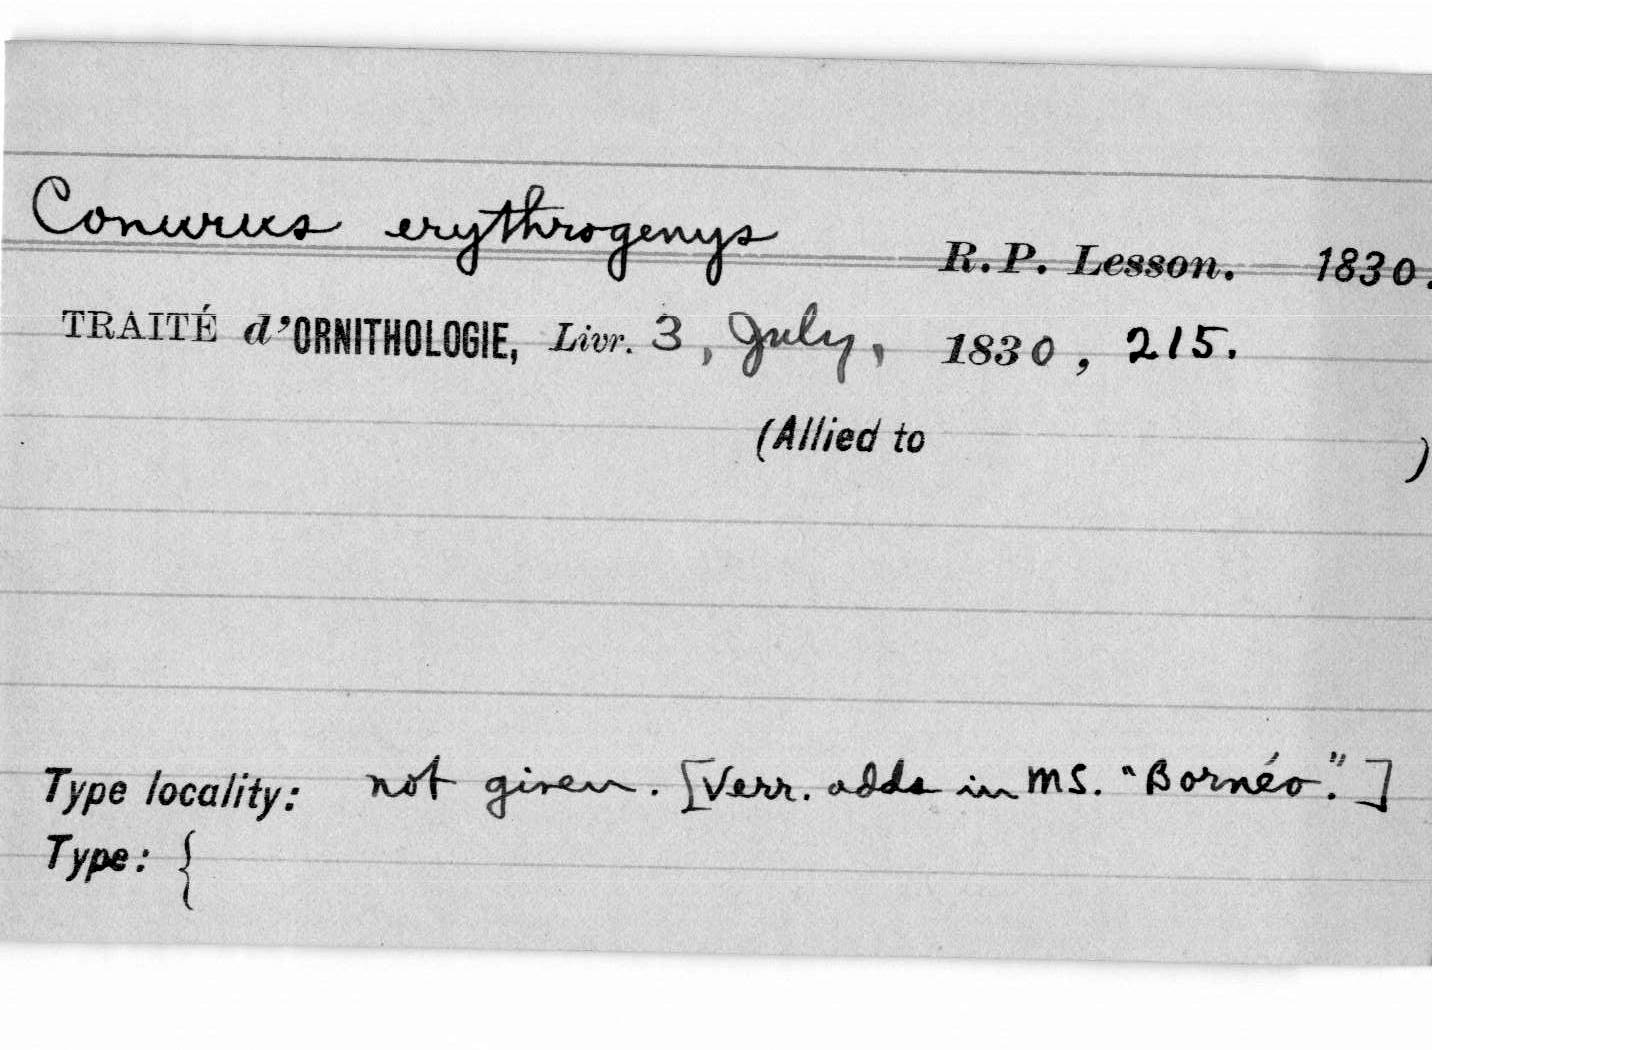 Conurus erythrogenys R.P. Lesson. 1830.
TRAITÉ d'ORNITHOLOGIE, Livr. 3, July, 1830, 215.
(Allied to )
Type locality: not given. [Verr. adds in MS. "Bornéo".]
Type: {